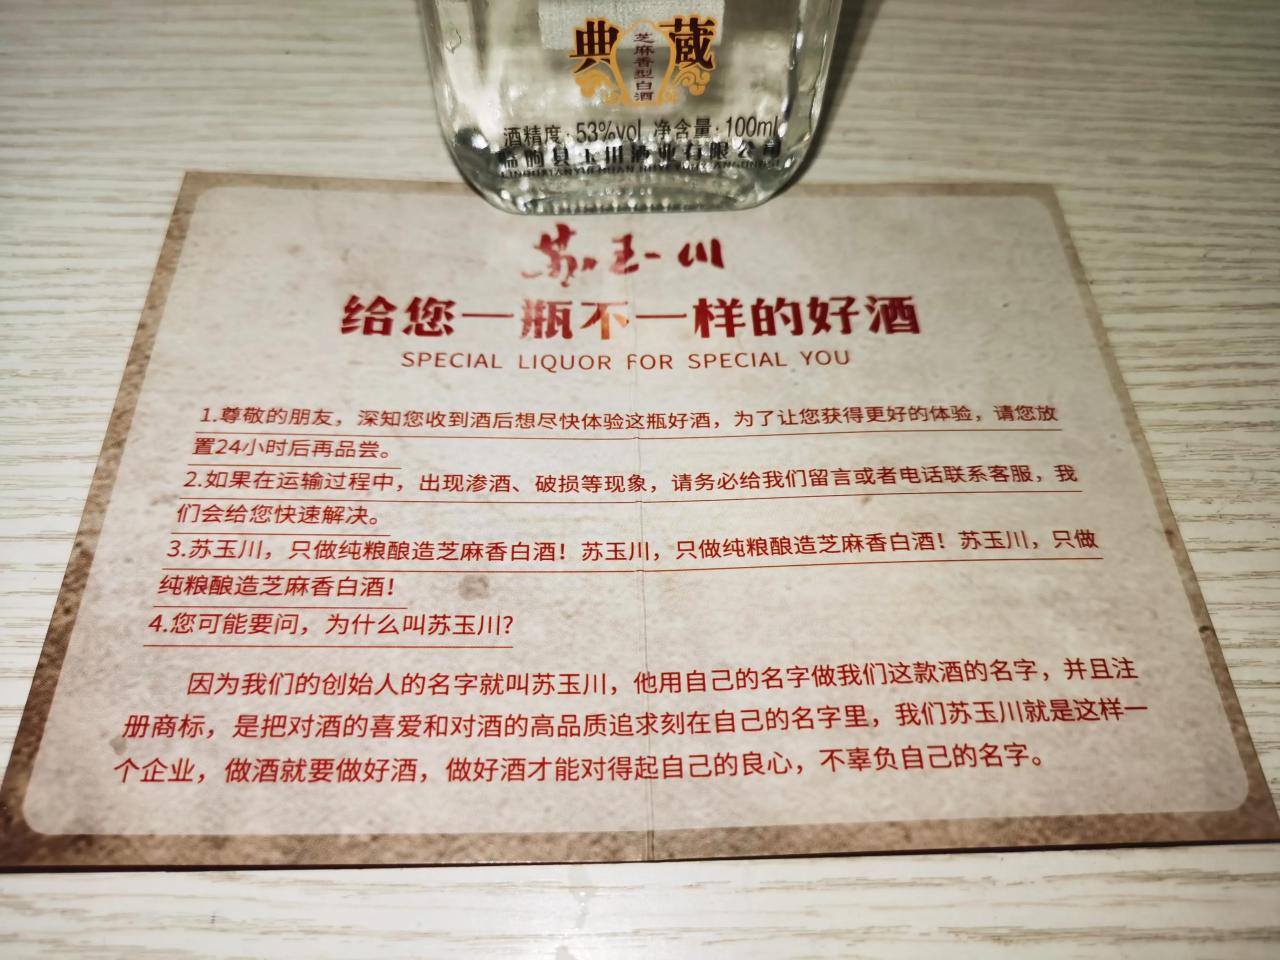 典藏
芝麻香型白酒
酒精度:53%vol 净含量:100ml
临朐县玉川酒业有限公司
苏玉川
给您一瓶不一样的好酒
SPECIAL LIQUOR FOR SPECIAL YOU
1.尊敬的朋友，深知您收到酒后想尽快体验这瓶好酒，为了让您获得更好的体验，请您放
置24小时后再品尝。
2.如果在运输过程中，出现渗酒、破损等现象，请务必给我们留言或者电话联系客服，我
们会给您快速解决。
3.苏玉川，只做纯粮酿造芝麻香白酒！苏玉川，只做纯粮酿造芝麻香白酒！苏玉川，只做
纯粮酿造芝麻香白酒！
4.您可能要问，为什么叫苏玉川？
因为我们的创始人的名字就叫苏玉川，他用自己的名字做我们这款酒的名字，并且注
册商标，是把对酒的喜爱和对酒的高品质追求刻在自己的名字里，我们苏玉川就是这样一
个企业，做酒就要做好酒，做好酒才能对得起自己的良心，不辜负自己的名字。